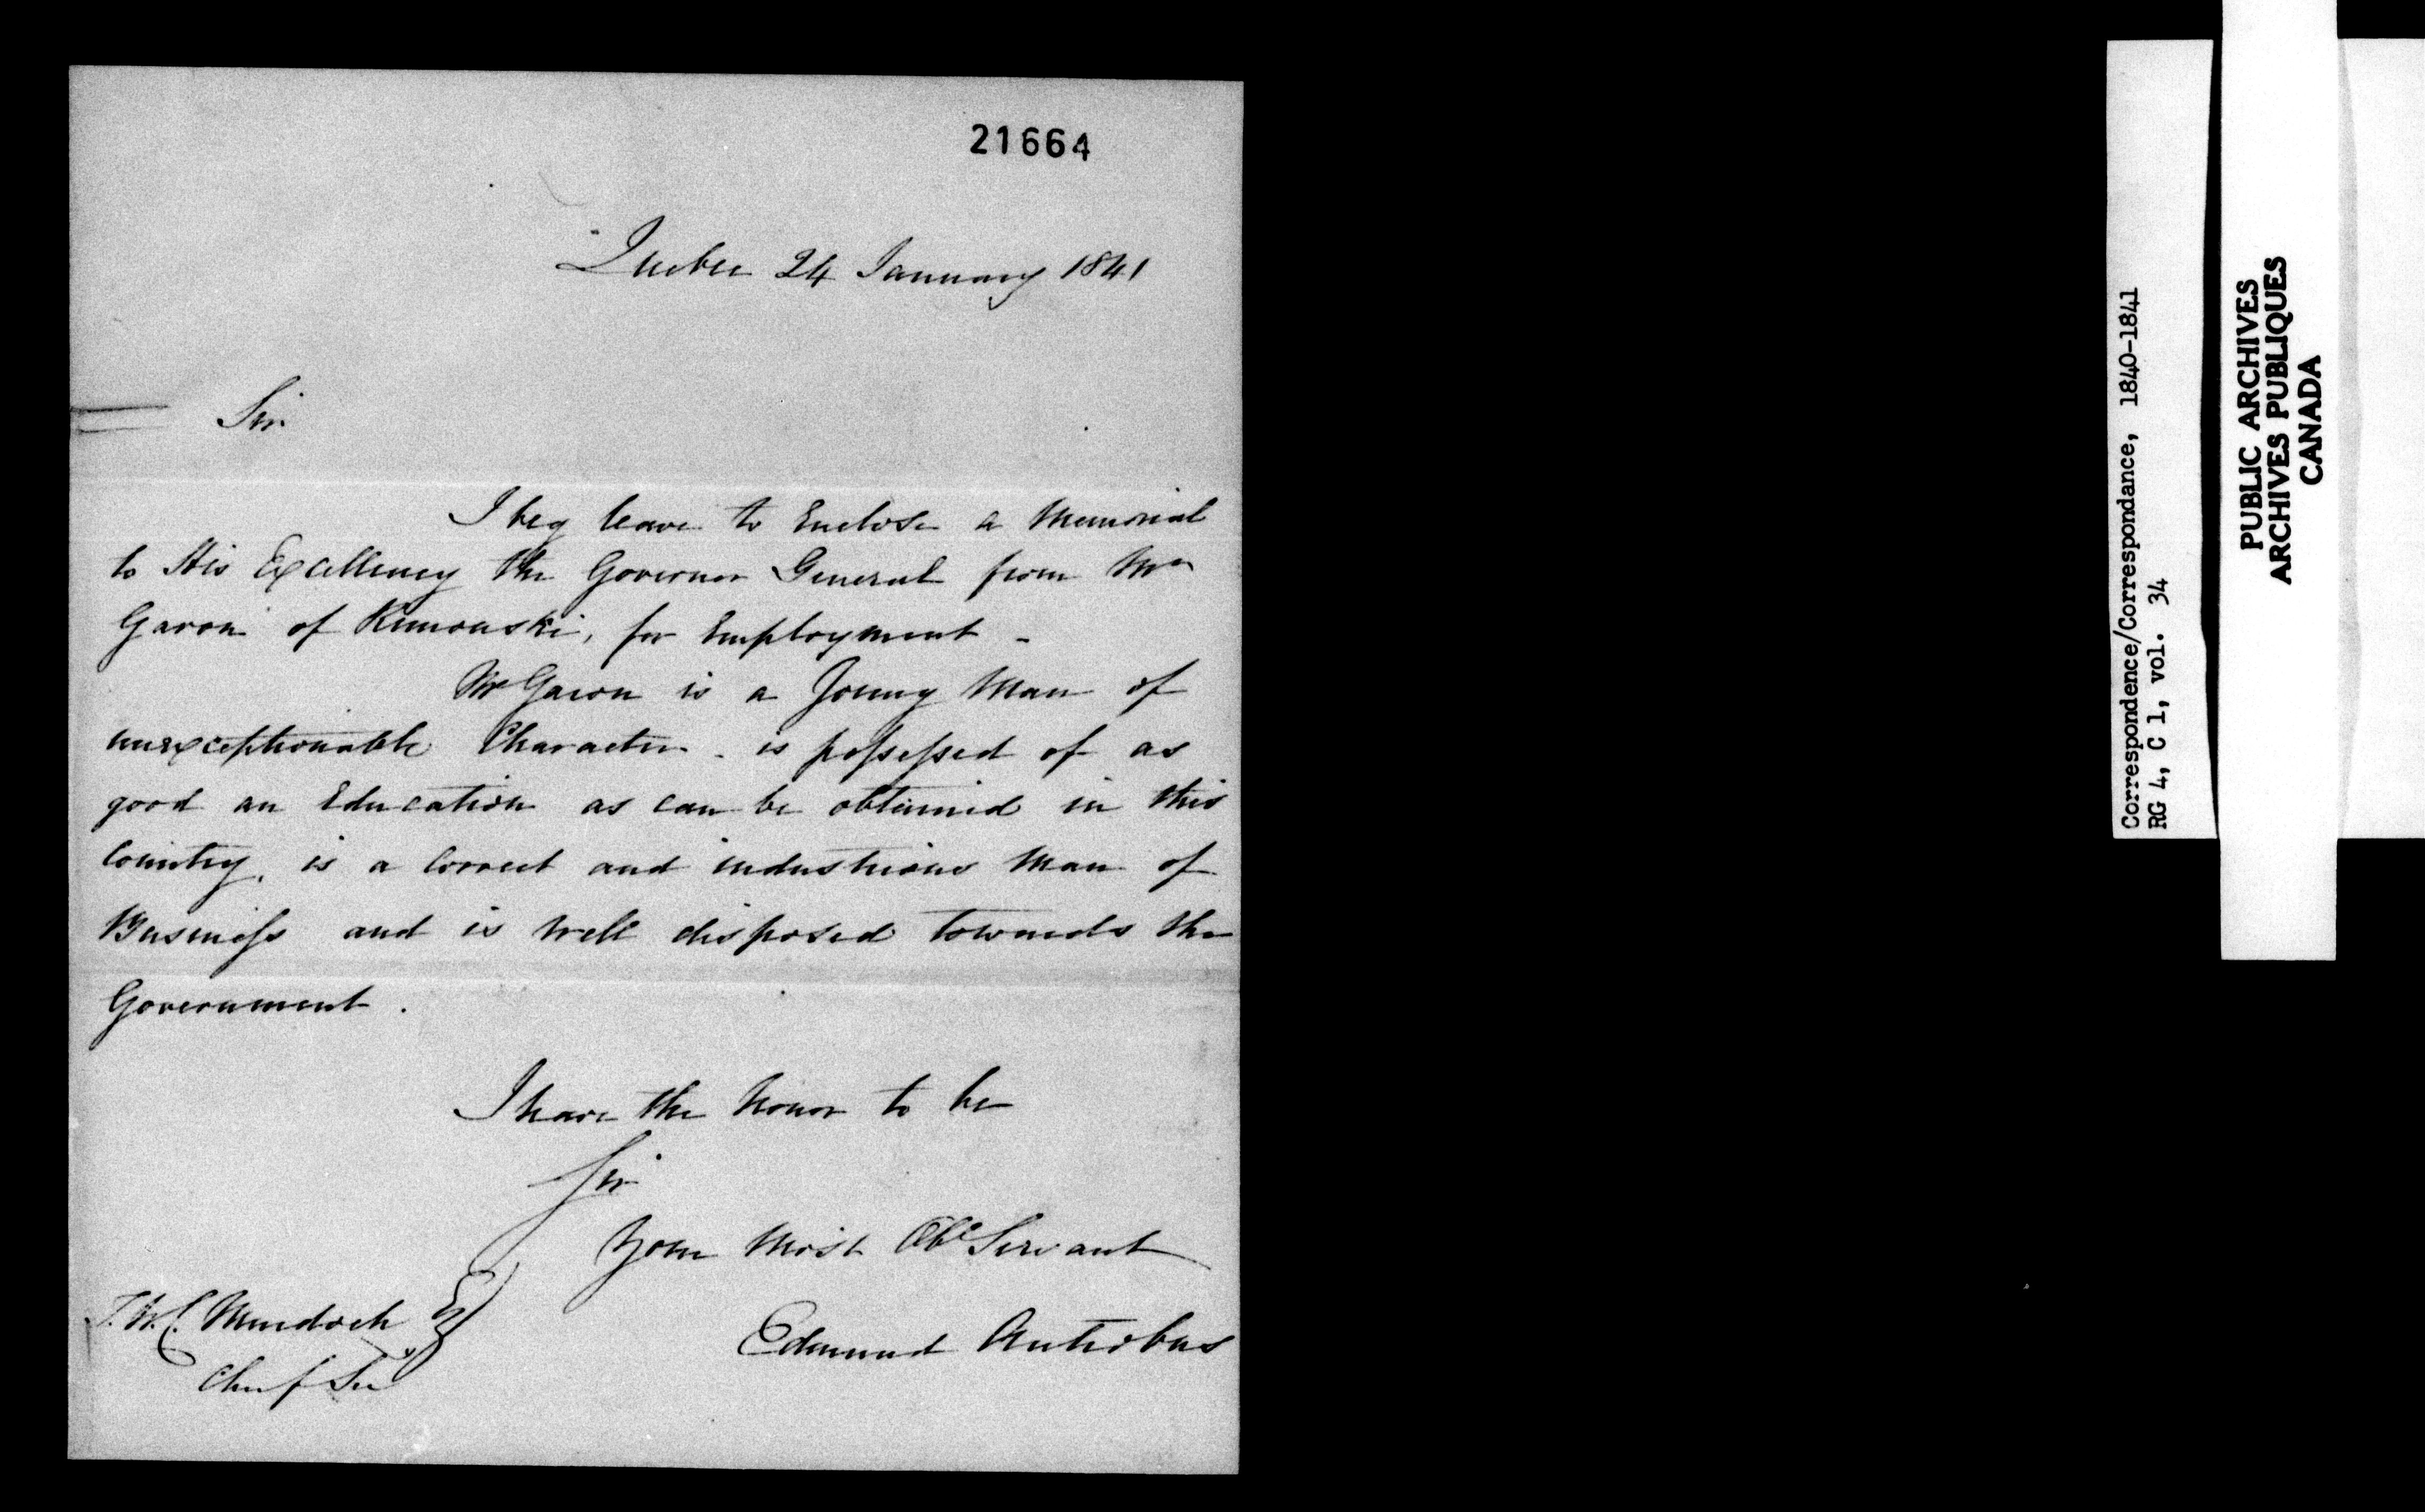 21664
Quebec 24 January 1841
Sir
I beg leave to Enclose a Memorial
to His Excellency the Governor General from Mr
Garon of Rimouski, for Employment -
Mr Garon is a Young Man of
unexceptionable Character - is possessed of as
good an Education as can be obtained in this
Country, is a Correct and industrious Man of
Business and is well disposed towards the
Government.
I have the honor to be
Sir
Your Most Obt Servant
Edmund Antrobus
T. W. C. Murdoch Esqr
Chief Secy
Correspondence/Correspondance, 1840-1841
RG 4, C 1, vol. 34
PUBLIC ARCHIVES
ARCHIVES PUBLIQUES
CANADA